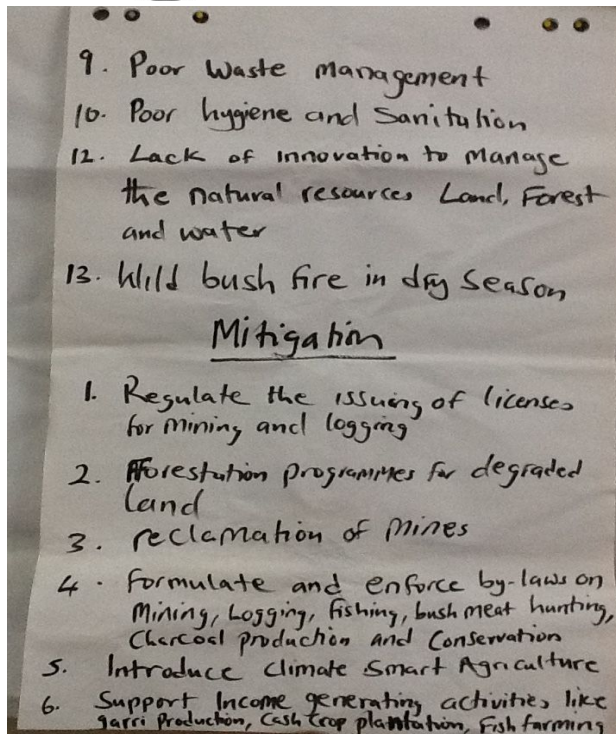 9. Poor Waste management
10. Poor hygiene and Sanitution
12. Lack of innovation to Manage
the natural resources Land, Forest
and water
13. Wild bush fire in dry Season
Mitigation
1. Regulate the issuing of licenses
for Mining and logging
2. Afforestution programmes for degraded
land
3. reclamation of Mines
4. formulate and enforce by-laws on
Mining, Logging, fishing, bush meat hunting,
Charcoal production and Conservation
5. Introduce Climate Smart Agriculture
6. Support Income generating activities like
garri Production, Cash Crop plantation, Fish farming